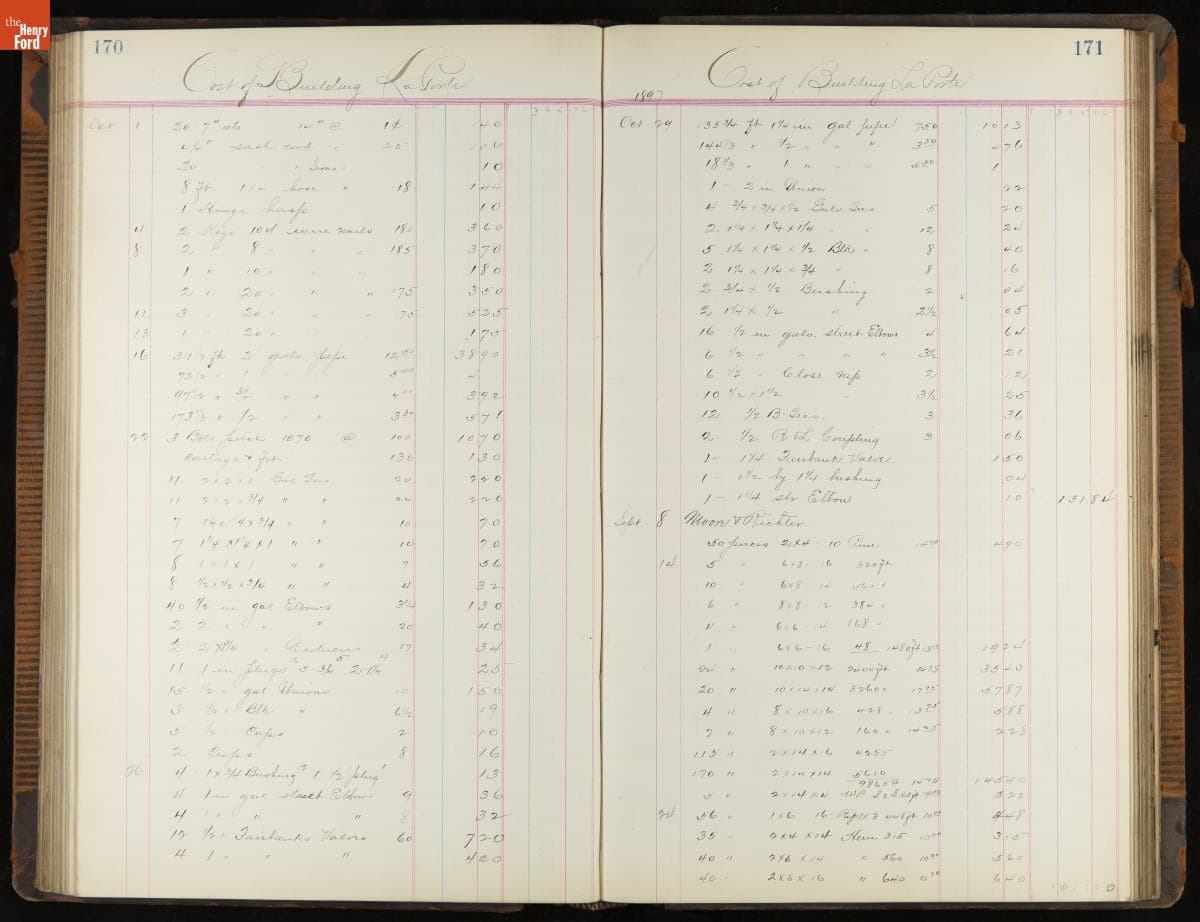 the
Henry
Ford
170
Cost of Building La Porte
Oct 1 14 @ 1¢ 1 40
sash cord " 25 1 06
30 10
8 ft hose " 18 1 44
1 Hinge hasp 10
4 2 Kegs 10d wire nails 180 3 60
8 2 " 8 " " " 185 3 70
1 " 10 " " " 1 80
2 " 20 " " " 175 3 50
11 3 " 20 " " " 75 5 25
13 1 " 20 " 1 75
16 2 galv pipe 38 90
1 "
97 1/2 " 3/4 " " 3 92
173 1/3 " 1/2 " " 3 30 5 71
22 3 Bbls pitch 1070 @ 100 10 70
Cartage & frt 130 1 30
11 2x2x1 20 2 20
11 2x2x3/4 " " 20 2 20
7 1 1/4x1 1/4x3/4 " " 10 70
7 1 1/4x1 1/4x1 " " 10 70
8 1x1x1 " " 7 56
8 1/2x1/2x3/4 " " 4 32
40 1/2 in gal Elbows 3 1/4 1 30
2 2 " " " 20 40
2 " Reducers 17 34
11 1 in plugs 25
15 1/2 " gal Unions 10 1 50
3 1/2 " Blk " 6 1/2 19
5 1/2 Caps 2 10
2 Caps 8 16
26 4 - 1x3/4 Bushing 1 - 1/2 plug 13
4 1 in gal street Elbows 9 36
4 1 " " " 8 32
12 1/2 " Fairbanks Valves 60 7 20
4 1 " " " 4 20
171
Cost of Building La Porte
1897
Oct 29 135 3/4 ft 1 1/4 in gal pipe 7 50 10 13
144 1/3 " 1/2 " " " 3 30 4 76
18 2/3 " 1 " " " 1
1 - 2 in Union 22
4 3/4 x 3/4 x 1/2 Galv Tees 5 20
2 1 1/4 x 1 1/4 x 1 1/4 " " 12 24
5 1 1/4 x 1 1/4 x 1/2 Blk " 8 40
2 1 1/4 x 1 1/4 x 3/4 " 8 16
2 3/4 x 1/2 Bushing 2 04
2 1 1/4 x 1/2 " 2 1/2 05
16 1/2 in galv. street Elbows 4 64
6 1/2 " " " " 3 1/2 21
6 1/2 " Close nip 2 12
10 1/2 x 1 1/2 " 25
12 1/2 B. Tees. 3 36
2 1/2 R & L Coupling 3 06
1 - 1 1/4 Fairbanks Valve. 1 50
1 - 1 1/2 by 1 1/4 bushing 04
1 - 1 1/4 str Elbow 10 131 84
Sept 8 Moore & Richter
50 pieces 2x4 - 10 Pine 4 90
14 5 " 6x8 - 16 320 ft
10 " 6x8 - 14 560 "
6 " 8x8 - 12 384 "
4 " 6x6 - 14 168 "
1 " 6x6 - 16 48 1480 ft 19 24
22 " 10x10x12 2400 ft 14 75 35 40
20 " 10x14x14 3260 " 17 75 57 87
4 " 8x10x16 428 " 13 75 5 88
2 " 8x10x12 160 " 14 25 2 28
115 " 2x14x16 4255
170 " 2x14x14 5610
9865 @ 14 75 145 50
5 " 2x14x14 3 22
24 56 " 1x6 16 - 448 ft 10 00 4 48
35 " 2x4x14 Hem 315 10 00 3 15
40 " 2x6x14 " 560 10 00 5 60
40 " 2x6x16 " 640 10 00 6 40